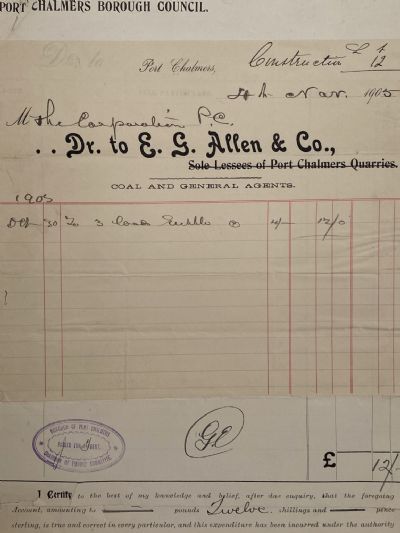 PORT CHALMERS BOROUGH COUNCIL.
Construction £ 12
Port Chalmers, 4th Nov. 1905
M the Corporation P.C.
. . Dr. to E. G. Allen & Co.,
Sole Lessees of Port Chalmers Quarries.
COAL AND GENERAL AGENTS.
1905
Oct 30 To 3 @ 4/- 12/0
BOROUGH OF PORT CHALMERS
PASSED FOR PAYMENT.
CHAIRMAN OF FINANCE COMMITTEE
GE
£ 12/-
I Certify to the best of my knowledge and belief, after due enquiry, that the foregoing
Account, amounting to pounds Twelve shillings and pence
sterling, is true and correct in every particular, and this expenditure has been incurred under the authority